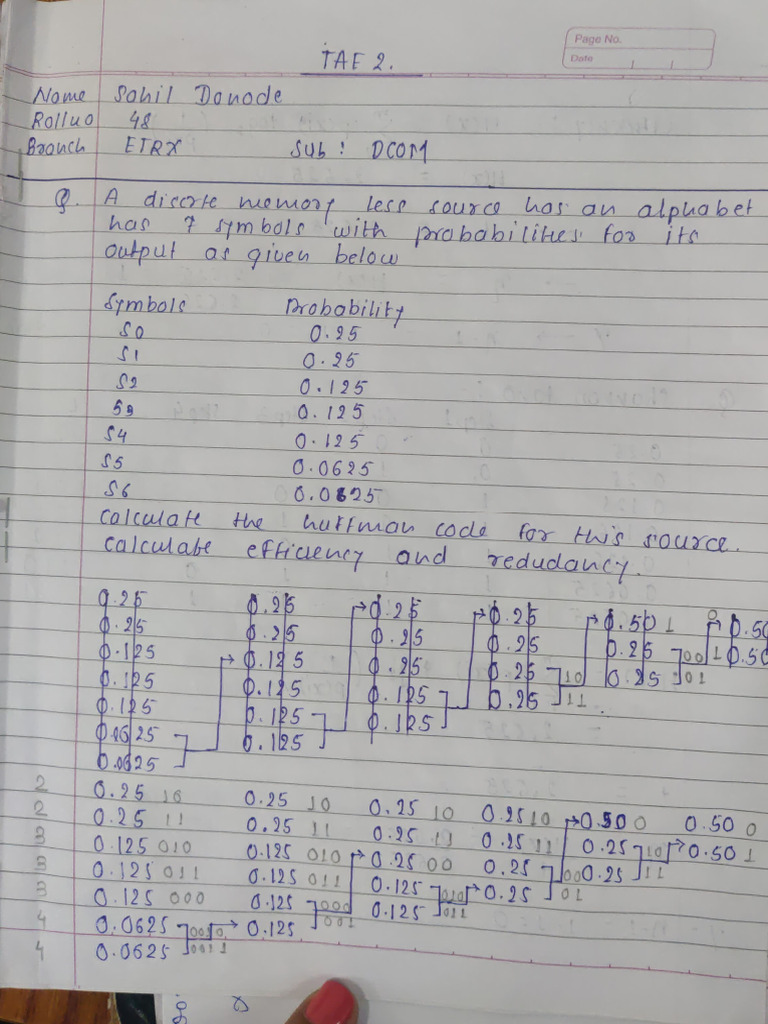 Page No.
Date
TAE 2.
Name Sahil Danode
Rollno 48
Branch ETRX Sub : DCOM
Q. A discrte memory less source has an alphabet
has 7 symbols with probabilities for its
output as given below
Symbols Probability
S0 0.25
S1 0.25
S2 0.125
S3 0.125
S4 0.125
S5 0.0625
S6 0.0625
Calculate the huffman code for this source.
Calculate efficiency and redudancy.
0.25 0.25 0.25 0.25 0.50 1 0 0.50
0.25 0.25 0.25 0.25 0.25 00 1 0.50
0.125 0.125 0.25 0.25 10 0.25 01
0.125 0.125 0.125 0.25 11
0.125 0.125 0.125
0.0625 0.125
0.0625
2 0.25 10 0.25 10 0.25 10 0.25 10 0.50 0 0.50 0
2 0.25 11 0.25 11 0.25 11 0.25 11 0.25 10 0.50 1
3 0.125 010 0.125 010 0.25 00 0.25 00 0.25 11
3 0.125 011 0.125 011 0.125 010 0.25 01
3 0.125 000 0.125 000 0.125 011
4 0.0625 0010 0.125 001
4 0.0625 0011